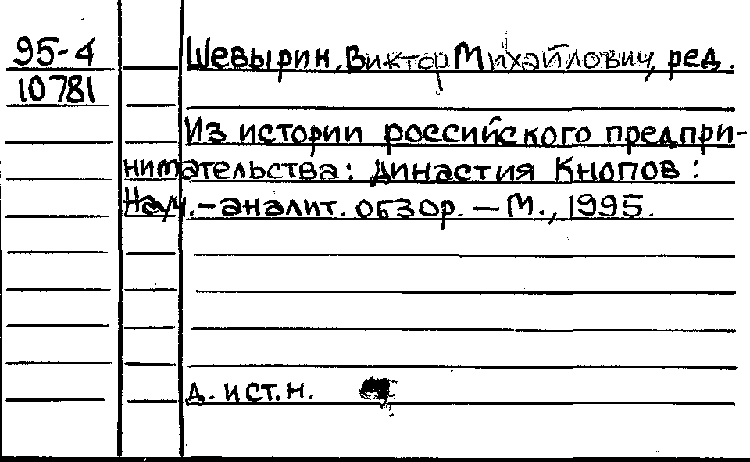 95-4 Шевырин, Виктор Михайлович, ред.
10781
Из истории российского предпри-
нимательства: династия Кнопов:
Науч.-аналит. обзор. — М., 1995.
д. ист. н.